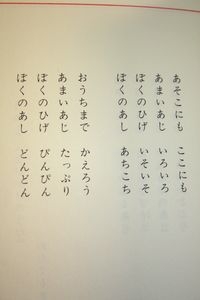 あそこにも　ここにも
あまいあじ　いろいろ
ぼくのひげ　いそいそ
ぼくのあし　あちこち
おうちまで　かえろう
あまいあじ　たっぷり
ぼくのひげ　ぴんぴん
ぼくのあし　どんどん